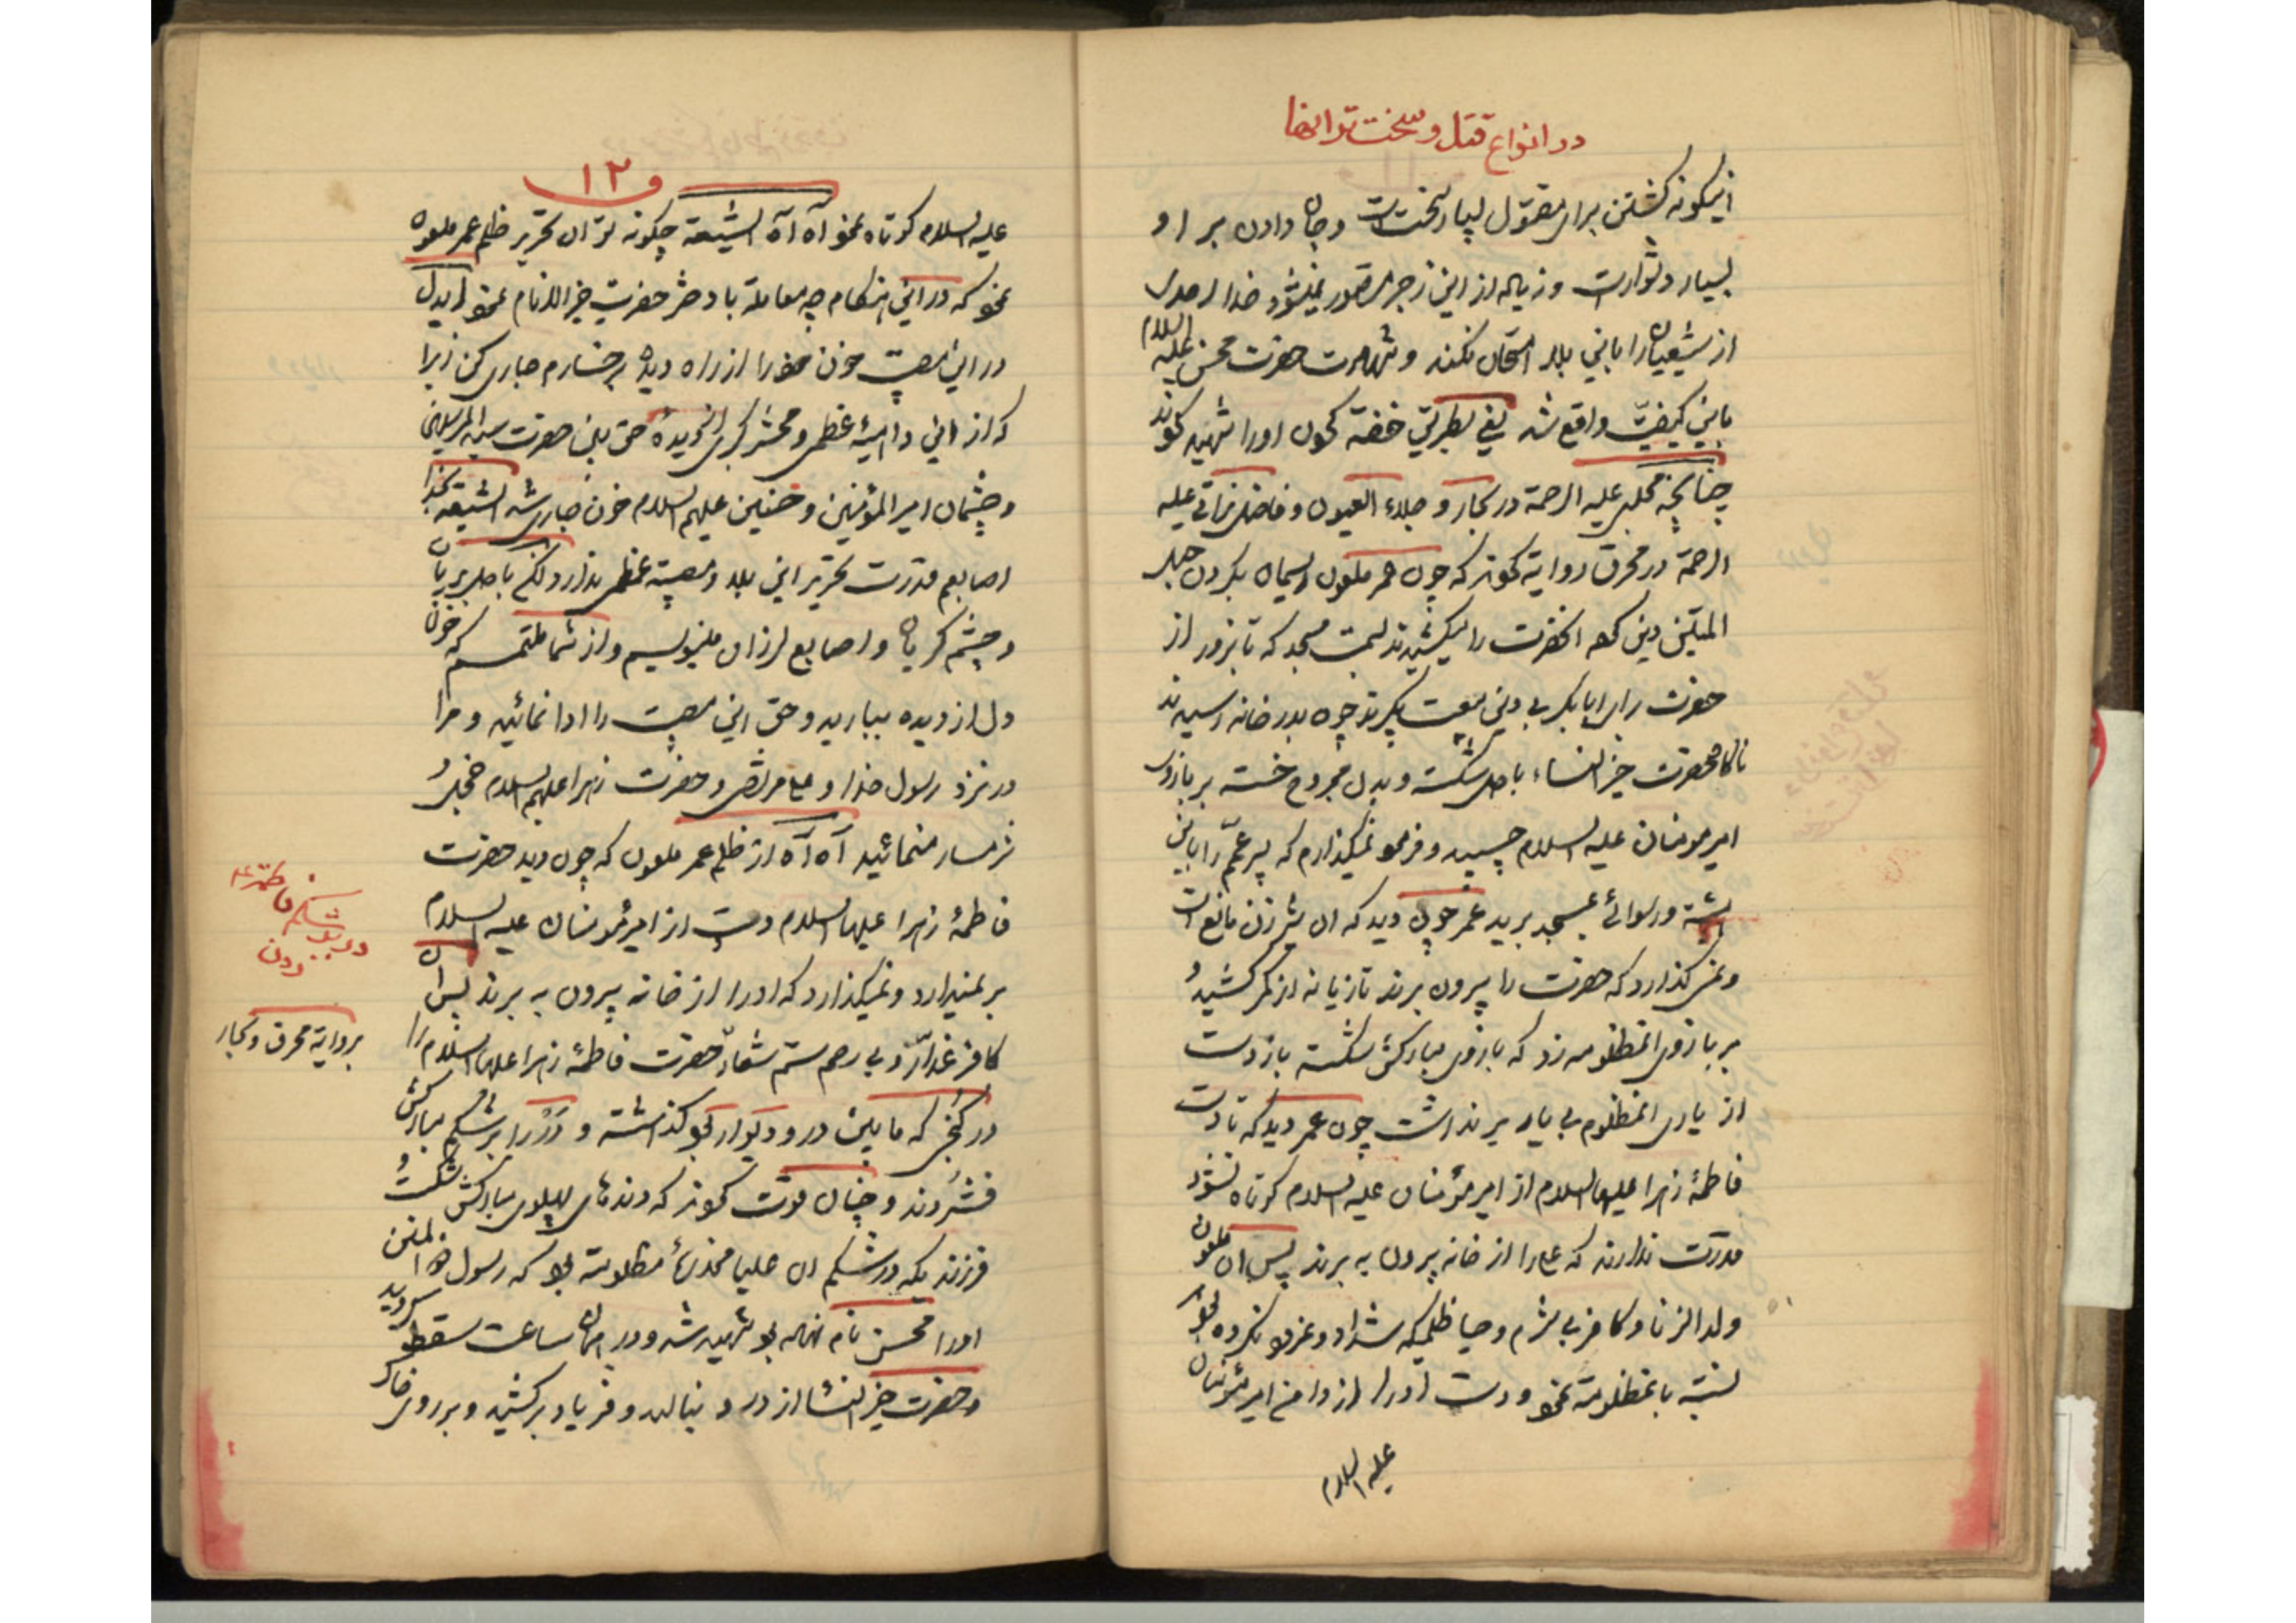 در انواع قتل و سخت‌تر انها
اینگونه کشتن برای مقتول بسیار سخت است و جان دادن بر او
بسیار دشوار است و زیاده از این زجر متصور نمیشود خدا احدی
از شیعیان را باین بلا امتحان نکند و شهادت حضرت محسن علیه السلام
باین کیفیت واقع شد یعنی بطریق خفه کردن اورا شهید کردند
چنانچه مجلسی علیه الرحمة در بحار و جلاء العیون و فاضل نراقی علیه
الرحمة در محرق روایة کردند که چون عمر ملعون ریسمان بگردن حبل
المتین دین کرد انحضرت را میکشیدند بسمت مسجد که تا بزور از
حضرت برای ابابکر بی دین بیعت بگیرند چون بدر خانه رسیدند
ناگاه حضرت خیر النساء با دل شکسته و بدن مجروح خسته بر بازوی
امیر مومنان علیه السلام چسپید و فرمود نمیگذارم که پسر عمم را باین
و رسوائی بمسجد برید عمر چون دید که ان شیر زن مانع است
و نمی گذارد که حضرت را بیرون برند تازیانه از کمر کشید و
بر بازوی انمظلومه زد که بازوی مبارکش شکست باز دست
از یاری انمظلوم بی یار بر نداشت چون عمر دید که تا دست
فاطمهٔ زهرا علیها السلام از امیر مؤمنان علیه السلام کوتاه نشود
قدرت ندارند که علی را از خانه بیرون به برند پس ان ملعون
ولد الزنا و کافر بی شرم و حیا ظلمیکه شداد و نمرود نکرده بود
نسبة بانمظلومة نمود و دست اورا از دامن امیر مؤمنان
علیه السلام
و ۱۲
علیه السلام کوتاه نمود آه آه الشیعة چگونه توان تحریر ظلم عمر ملعون
نمود که در این هنگام چه معاملة با دختر حضرت خیر الانام نمود ایدل
در این مصیبت خون خود را از راه دیده بر رخسارم جاری کن زیرا
که از این داهیهٔ عظمی و محشر کبری از دیدهٔ حق بین حضرت سید المرسلین
و چشمان امیر المؤمنین و حسنین علیهم السلام خون جاری شد الشیعة بخدا
اصابعم قدرت تحریر این بلا و مصیبة عظمی ندارد لکن با دل بریان
و چشم گریان و اصابع لرزان مینویسم و از شما ملتمسم که خون
دل از دیده ببارید و حق این مصیبت را ادا نمائید و مرا
در نزد رسول خدا و علی مرتضی و حضرت زهرا علیهم السلام خجل و
شرمسار منمائید آه آه از ظلم عمر ملعون که چون دید حضرت
فاطمهٔ زهرا علیها السلام دست از امیر مؤمنان علیه السلام
بر نمیدارد و نمیگذارد که اورا از خانه بیرون به برند پس ان
کافر غدار و بی رحم ستم شعار حضرت فاطمهٔ زهرا علیها السلام را
در کنجی که مابین در و دیوار بود گذاشته و در را بر شکم مبارکش
فشردند و چنان قوت کردند که دندهای پهلوی مبارکش شکست و
فرزندیکه در شکم ان علیا مخدرهٔ مظلومة بود که رسول
اورا محسن نام نهاده بود شهید شد و در همان ساعت سقط گردید
و حضرت خیر النسا از درد بنالید و فریاد برکشید و بر روی خاک
در بر شکم فاطمه ع
زدن
بروایة محرق و بحار